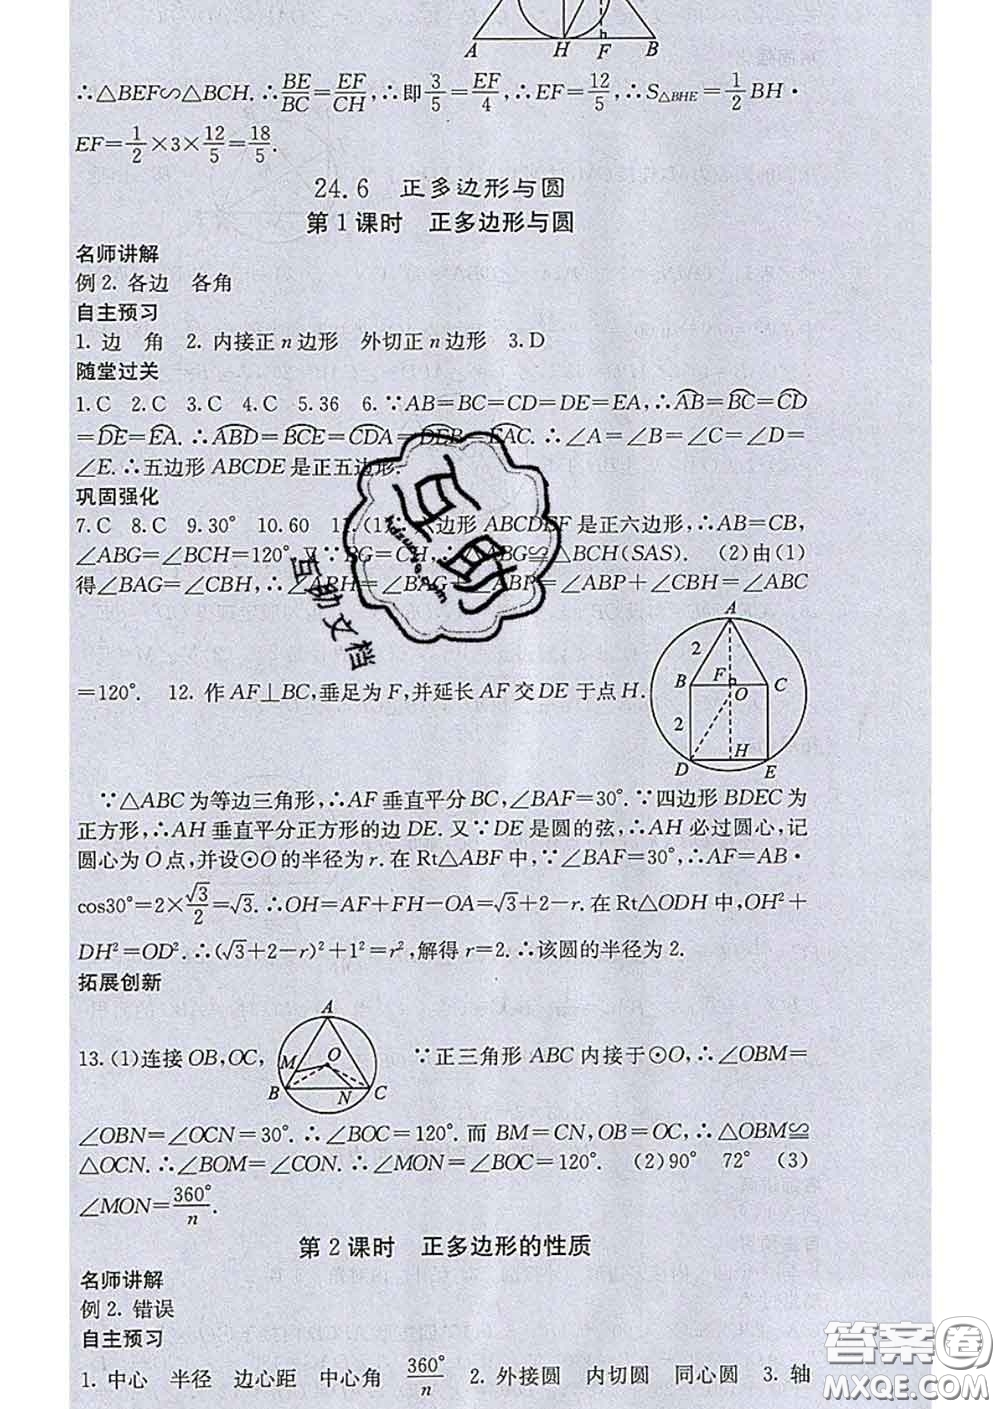 A H F B
∴△BEF∽△BCH. ∴BE/BC=EF/CH, ∴即3/5=EF/4, ∴EF=12/5, ∴S△BHE=1/2 BH·
EF=1/2×3×12/5=18/5.
24.6 正多边形与圆
第1课时 正多边形与圆
名师讲解
例2. 各边 各角
自主预习
1. 边 角 2. 内接正n边形 外切正n边形 3. D
随堂过关
1. C 2. C 3. C 4. C 5. 36 6. ∵AB=BC=CD=DE=EA, ∴AB=BC=CD
=DE=EA. ∴ABD=BCE=CDA=DEB=EAC. ∴∠A=∠B=∠C=∠D=
∠E. ∴五边形ABCDE是正五边形.
巩固强化
7. C 8. C 9. 30° 10. 60 11. (1)∵ 边形ABCDEF是正六边形, ∴AB=CB,
∠ABG=∠BCH=120°. 又∵BG=CH, ∴△ABG≌△BCH(SAS). (2)由(1)
得∠BAG=∠CBH, ∴∠ABH=∠BAG+∠ABP=∠ABP+∠CBH=∠ABC
=120°. 12. 作AF⊥BC, 垂足为F, 并延长AF交DE于点H.
A 2 B F C O 2 D H E
∵△ABC为等边三角形, ∴AF垂直平分BC, ∠BAF=30°. ∵四边形BDEC为
正方形, ∴AH垂直平分正方形的边DE. 又∵DE是圆的弦, ∴AH必过圆心, 记
圆心为O点, 并设⊙O的半径为r. 在Rt△ABF中, ∵∠BAF=30°, ∴AF=AB·
cos30°=2×√3/2=√3. ∴OH=AF+FH-OA=√3+2-r. 在Rt△ODH中, OH²+
DH²=OD². ∴(√3+2-r)²+1²=r², 解得r=2. ∴该圆的半径为2.
拓展创新
13. (1)连接OB, OC, A M O B N C ∵正三角形ABC内接于⊙O, ∴∠OBM=
∠OBN=∠OCN=30°. ∴∠BOC=120°. 而BM=CN, OB=OC, ∴△OBM≌
△OCN. ∴∠BOM=∠CON. ∴∠MON=∠BOC=120°. (2)90° 72° (3)
∠MON=360°/n.
第2课时 正多边形的性质
名师讲解
例2. 错误
自主预习
1. 中心 半径 边心距 中心角 360°/n 2. 外接圆 内切圆 同心圆 3. 轴
互助
互助文档
答案圈
MXQE.COM